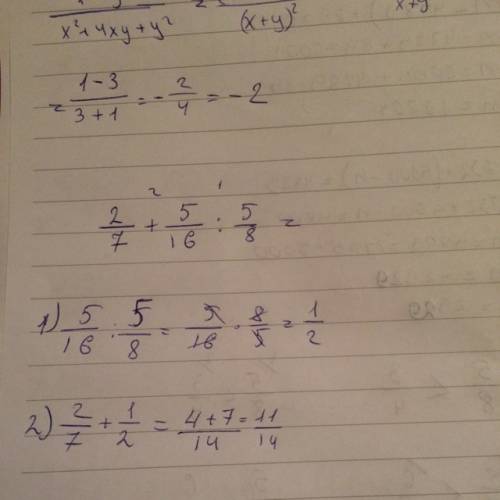 x²+4xy+y² (x+y)² x+y
= (1-3)/(3+1) = -2/4 = -2
2/7 + 5/16 : 5/8 =
2 1
1) 5/16 : 5/8 = 5/16 · 8/5 = 1/2
2) 2/7 + 1/2 = (4+7)/14 = 11/14